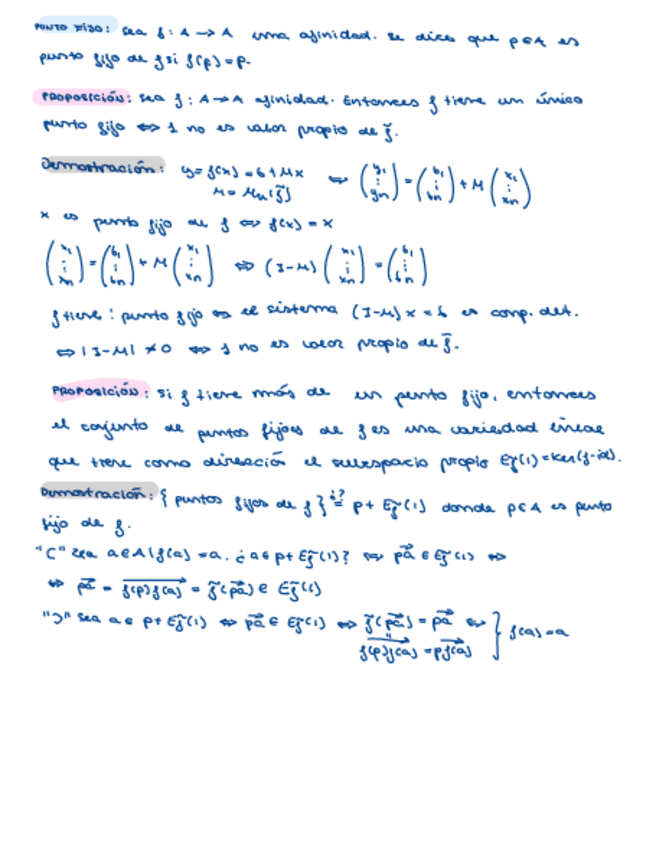 PUNTO FIJO: sea f: A → A una afinidad. se dice que p∈A es
punto fijo de f si f(p) = p.
PROPOSICIÓN: sea f: A → A afinidad. Entonces f tiene un único
punto fijo ⇔ 1 no es valor propio de f̃.
Demostración: y = f(x) = b + Mx ⇔ (y₁ ⋮ yn) = (b₁ ⋮ bn) + M (x₁ ⋮ xn)
M = Mn(f̃)
x es punto fijo de f ⇔ f(x) = x
(x₁ ⋮ xn) = (b₁ ⋮ bn) + M (x₁ ⋮ xn) ⇔ (I-M) (x₁ ⋮ xn) = (b₁ ⋮ bn)
f tiene ! punto fijo ⇔ el sistema (I-M) x = b es comp. det.
⇔ |I-M| ≠ 0 ⇔ 1 no es valor propio de f̃.
PROPOSICIÓN: si f tiene más de un punto fijo, entonces
el conjunto de puntos fijos de f es una variedad lineal
que tiene como dirección el subespacio propio Ef̃(1) = Ker(f̃-id).
Demostración: { puntos fijos de f } ¿=? p + Ef̃(1) donde p∈A es punto
fijo de f.
"⊂" sea a∈A | f(a) = a. ¿a∈ p + Ef̃(1)? ⇔ pa⃗ ∈ Ef̃(1) ⇔
⇔ pa⃗ = f(p)f(a)⃗ = f̃(pa⃗) ∈ Ef̃(1)
"⊃" sea a∈ p + Ef̃(1) ⇔ pa⃗ ∈ Ef̃(1) ⇔ f̃(pa⃗) = pa⃗ ⇔ } f(a) = a
f(p)f(a)⃗ = pf(a)⃗